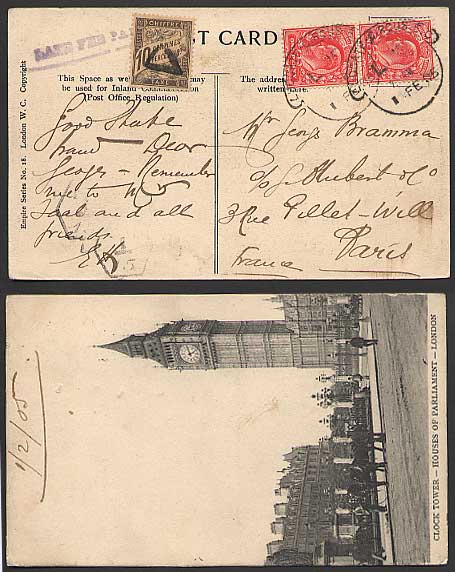 LATE FEE PA
CHIFFRE
10 CENTIMES
POST CARD
This Space as well may
be used for Inland
(Post Office Regulation)
The address
written here.
Empire Series No. 18. London W. C. Copyright
FE
Good Shake
hand Dear
George - Remember
me to Mr
and all
friends
EH
Mr George Bramma
Hubert & Co
3 Rue Pillet-Will
Paris
France
1/2/05
CLOCK TOWER — HOUSES OF PARLIAMENT — LONDON